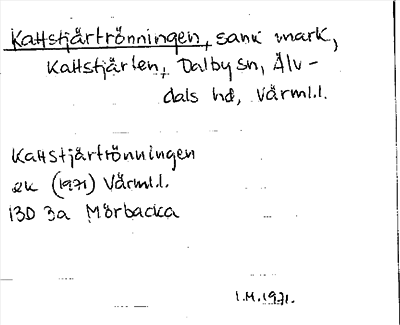 Kattstjärtrönningen, sank mark,
Kattstjärten, Dalby sn, Älv-
dals hd, Värml.l.
Kattstjärtrönningen
ek (1971) Värml.l.
13D 3a Mörbacka
I.M.1971.